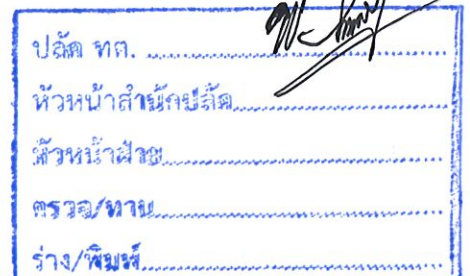 ปลัด ทต. ....................
หัวหน้าสำนักปลัด....................
หัวหน้าฝ่าย....................
ตรวจ/ทาน....................
ร่าง/พิมพ์....................